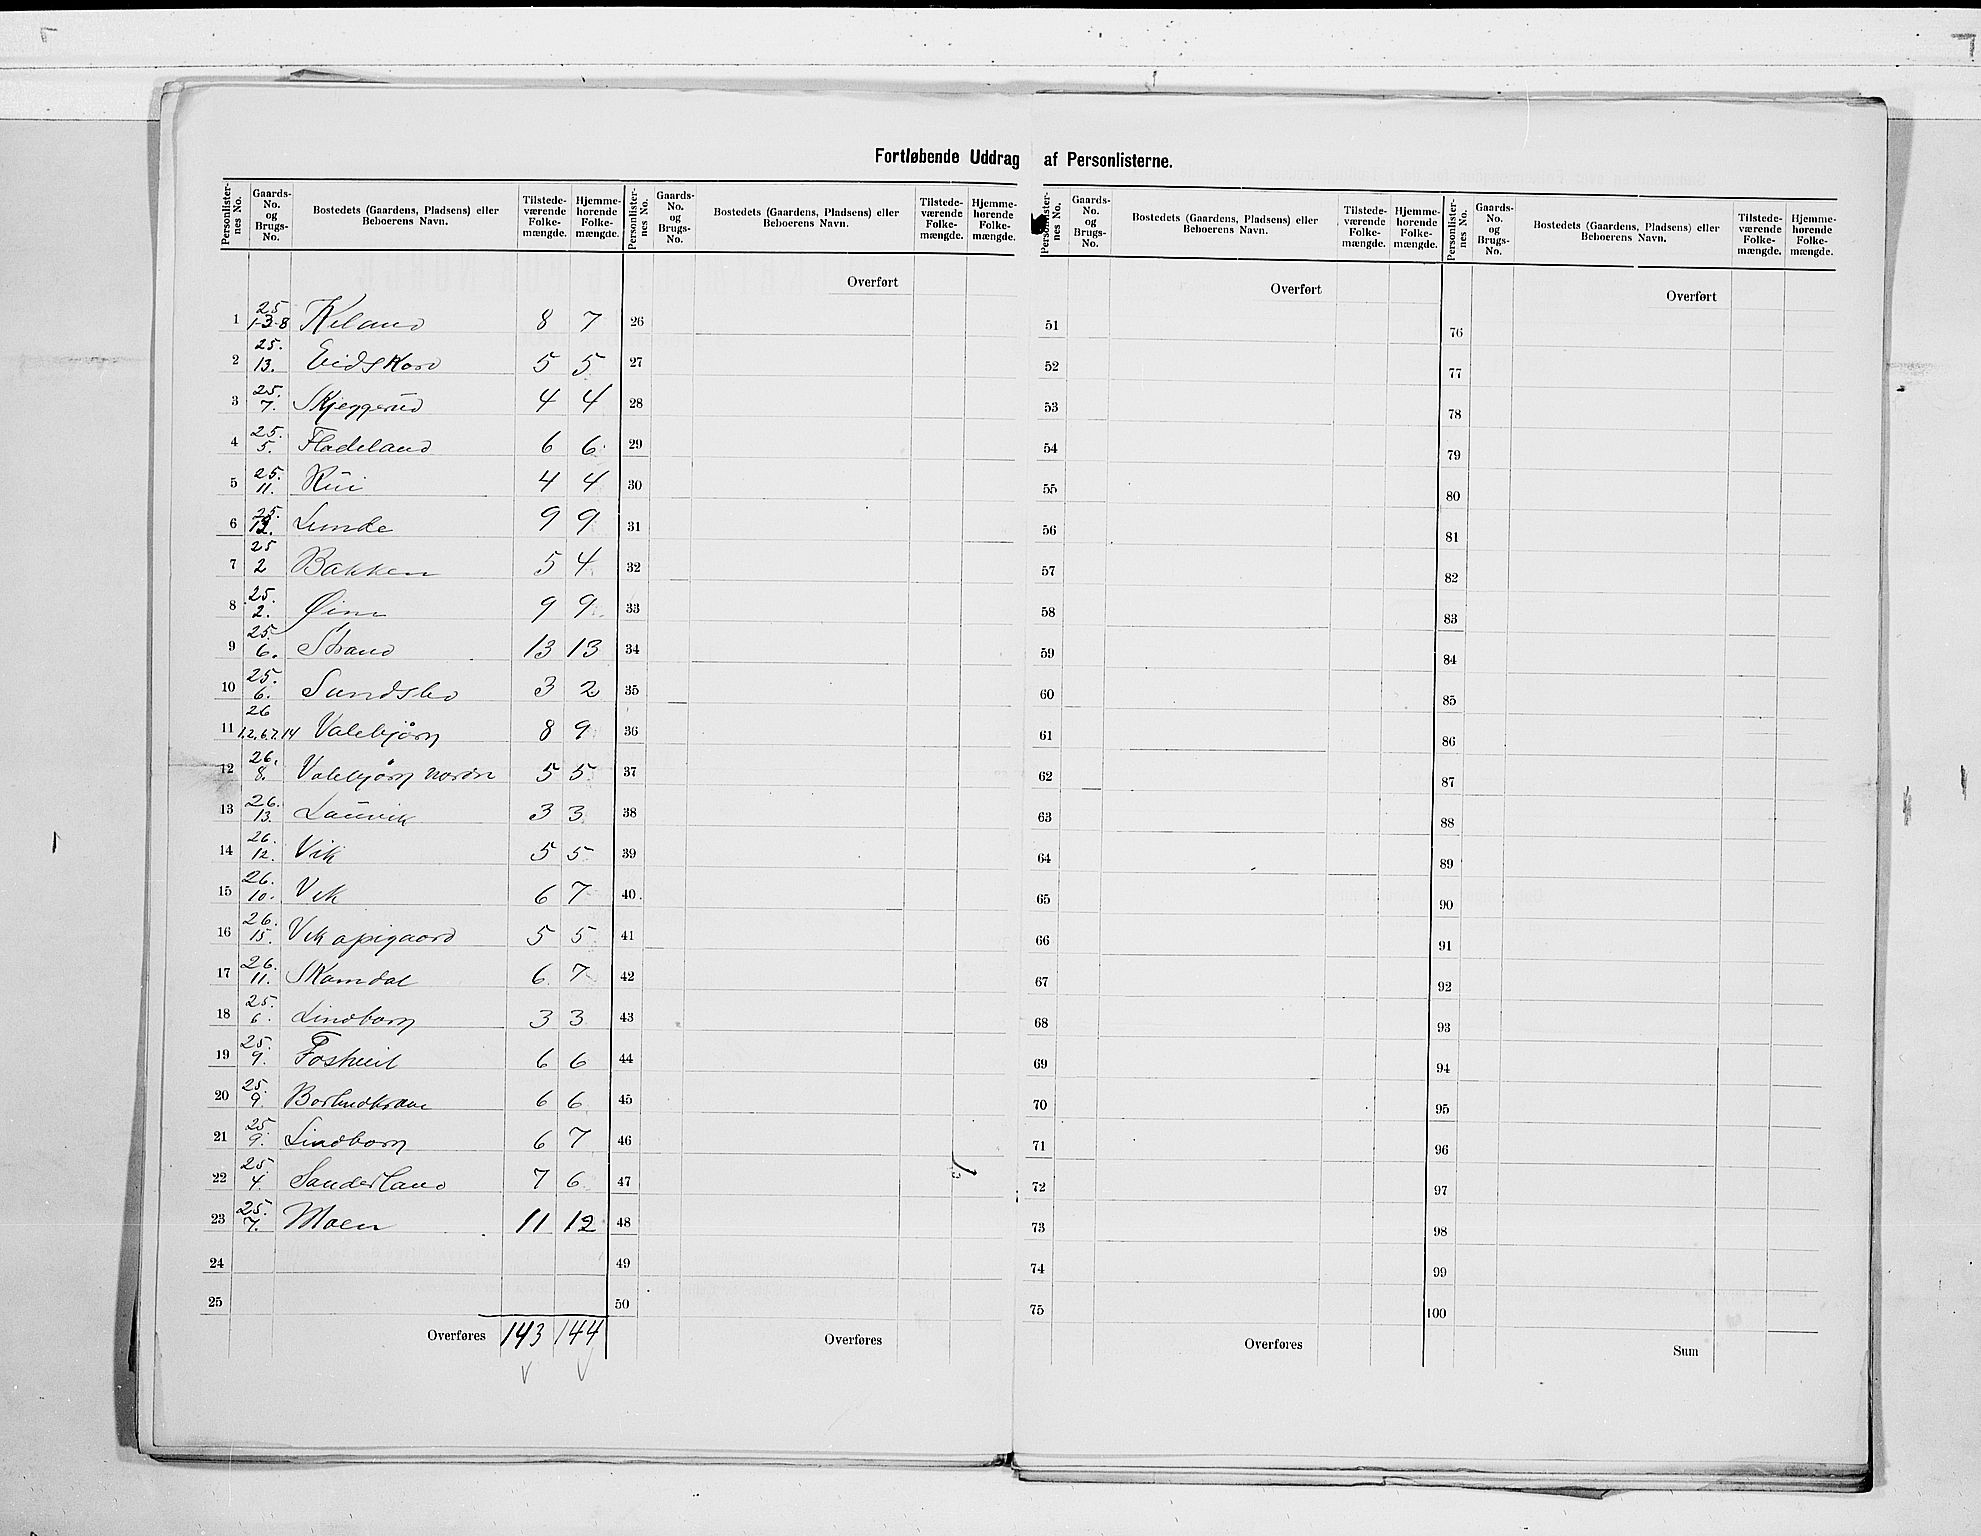 Fortløbende Uddrag af Personlisterne.
Personlister-nes No. Gaards-No. og Brugs-No. Bostedets (Gaardens, Pladsens) eller Beboerens Navn. Tilstede-værende Folke-mængde. Hjemme-hørende Folke-mængde.
Personlister-nes No. Gaards-No. og Brugs-No. Bostedets (Gaardens, Pladsens) eller Beboerens Navn. Tilstede-værende Folke-mængde. Hjemme-hørende Folke-mængde.
Personlister-nes No. Gaards-No. og Brugs-No. Bostedets (Gaardens, Pladsens) eller Beboerens Navn. Tilstede-værende Folke-mængde. Hjemme-hørende Folke-mængde.
Personlister-nes No. Gaards-No. og Brugs-No. Bostedets (Gaardens, Pladsens) eller Beboerens Navn. Tilstede-værende Folke-mængde. Hjemme-hørende Folke-mængde.
Overført Overført Overført
1 25 1-3-8 Kiland 8 7 26 51 76
2 25. 13. Eidskord 5 5 27 52 77
3 25. 7. Skjeggerud 4 4 28 53 78
4 25. 5. Fladeland 6 6 29 54 79
5 25. 11. Rui 4 4 30 55 80
6 25. 12. Lunde 9 9 31 56 81
7 25 2 Bakken 5 4 32 57 82
8 25. 2. Øim 9 9 33 58 83
9 25. 6. Strand 13 13 34 59 84
10 25. 6. Sundsbo 3 2 35 60 85
11 26 1.2.6.7.14 Valebjørg 8 9 36 61 86
12 26. 8. Valebjørg nordre 5 5 37 62 87
13 26. 13. Lauvik 3 3 38 63 88
14 26. 12. Vik 5 5 39 64 89
15 26. 10. Vik 6 7 40 65 90
16 26. 15. Vik opigaard 5 5 41 66 91
17 26. 11. Skamdal 6 7 42 67 92
18 25. 6. Lindborg 3 3 43 68 93
19 25. 9. Foshveit 6 6 44 69 94
20 25. 9. 6 6 45 70 95
21 25 9. Lindborg 6 7 46 71 96
22 25. 4. Sanderland 7 6 47 72 97
23 25. 7. Moen 11 12 48 73 98
24 49 74 99
25 50 75 100
Overføres 143 144 Overføres Overføres Sum